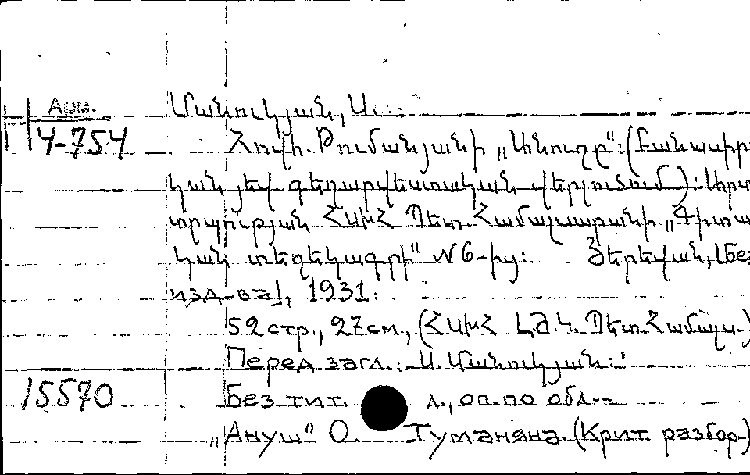 Арм.
4-754
Մանուկյան, Ա.
Հովհ. Թումանյանի „Անուշը": (Բանասիր
կան յեվ գեղարվեստական վերլուծում): Արտ
տպություն ՀՍԽՀ Պետ. Համալսարանի „Գիտա
կան տեղեկագրի" №6-ից: Յերեվան, [Без
изд-ва], 1931:
52стр., 27см., (ՀՍԽՀ ԼԺԿ. Պետ. Համալս.)
Перед загл.: Ա. Մանուկյան:
15570 Без тит. л., оп. по обл.
„Ануш" О. Туманяна. (Крит. разбор)